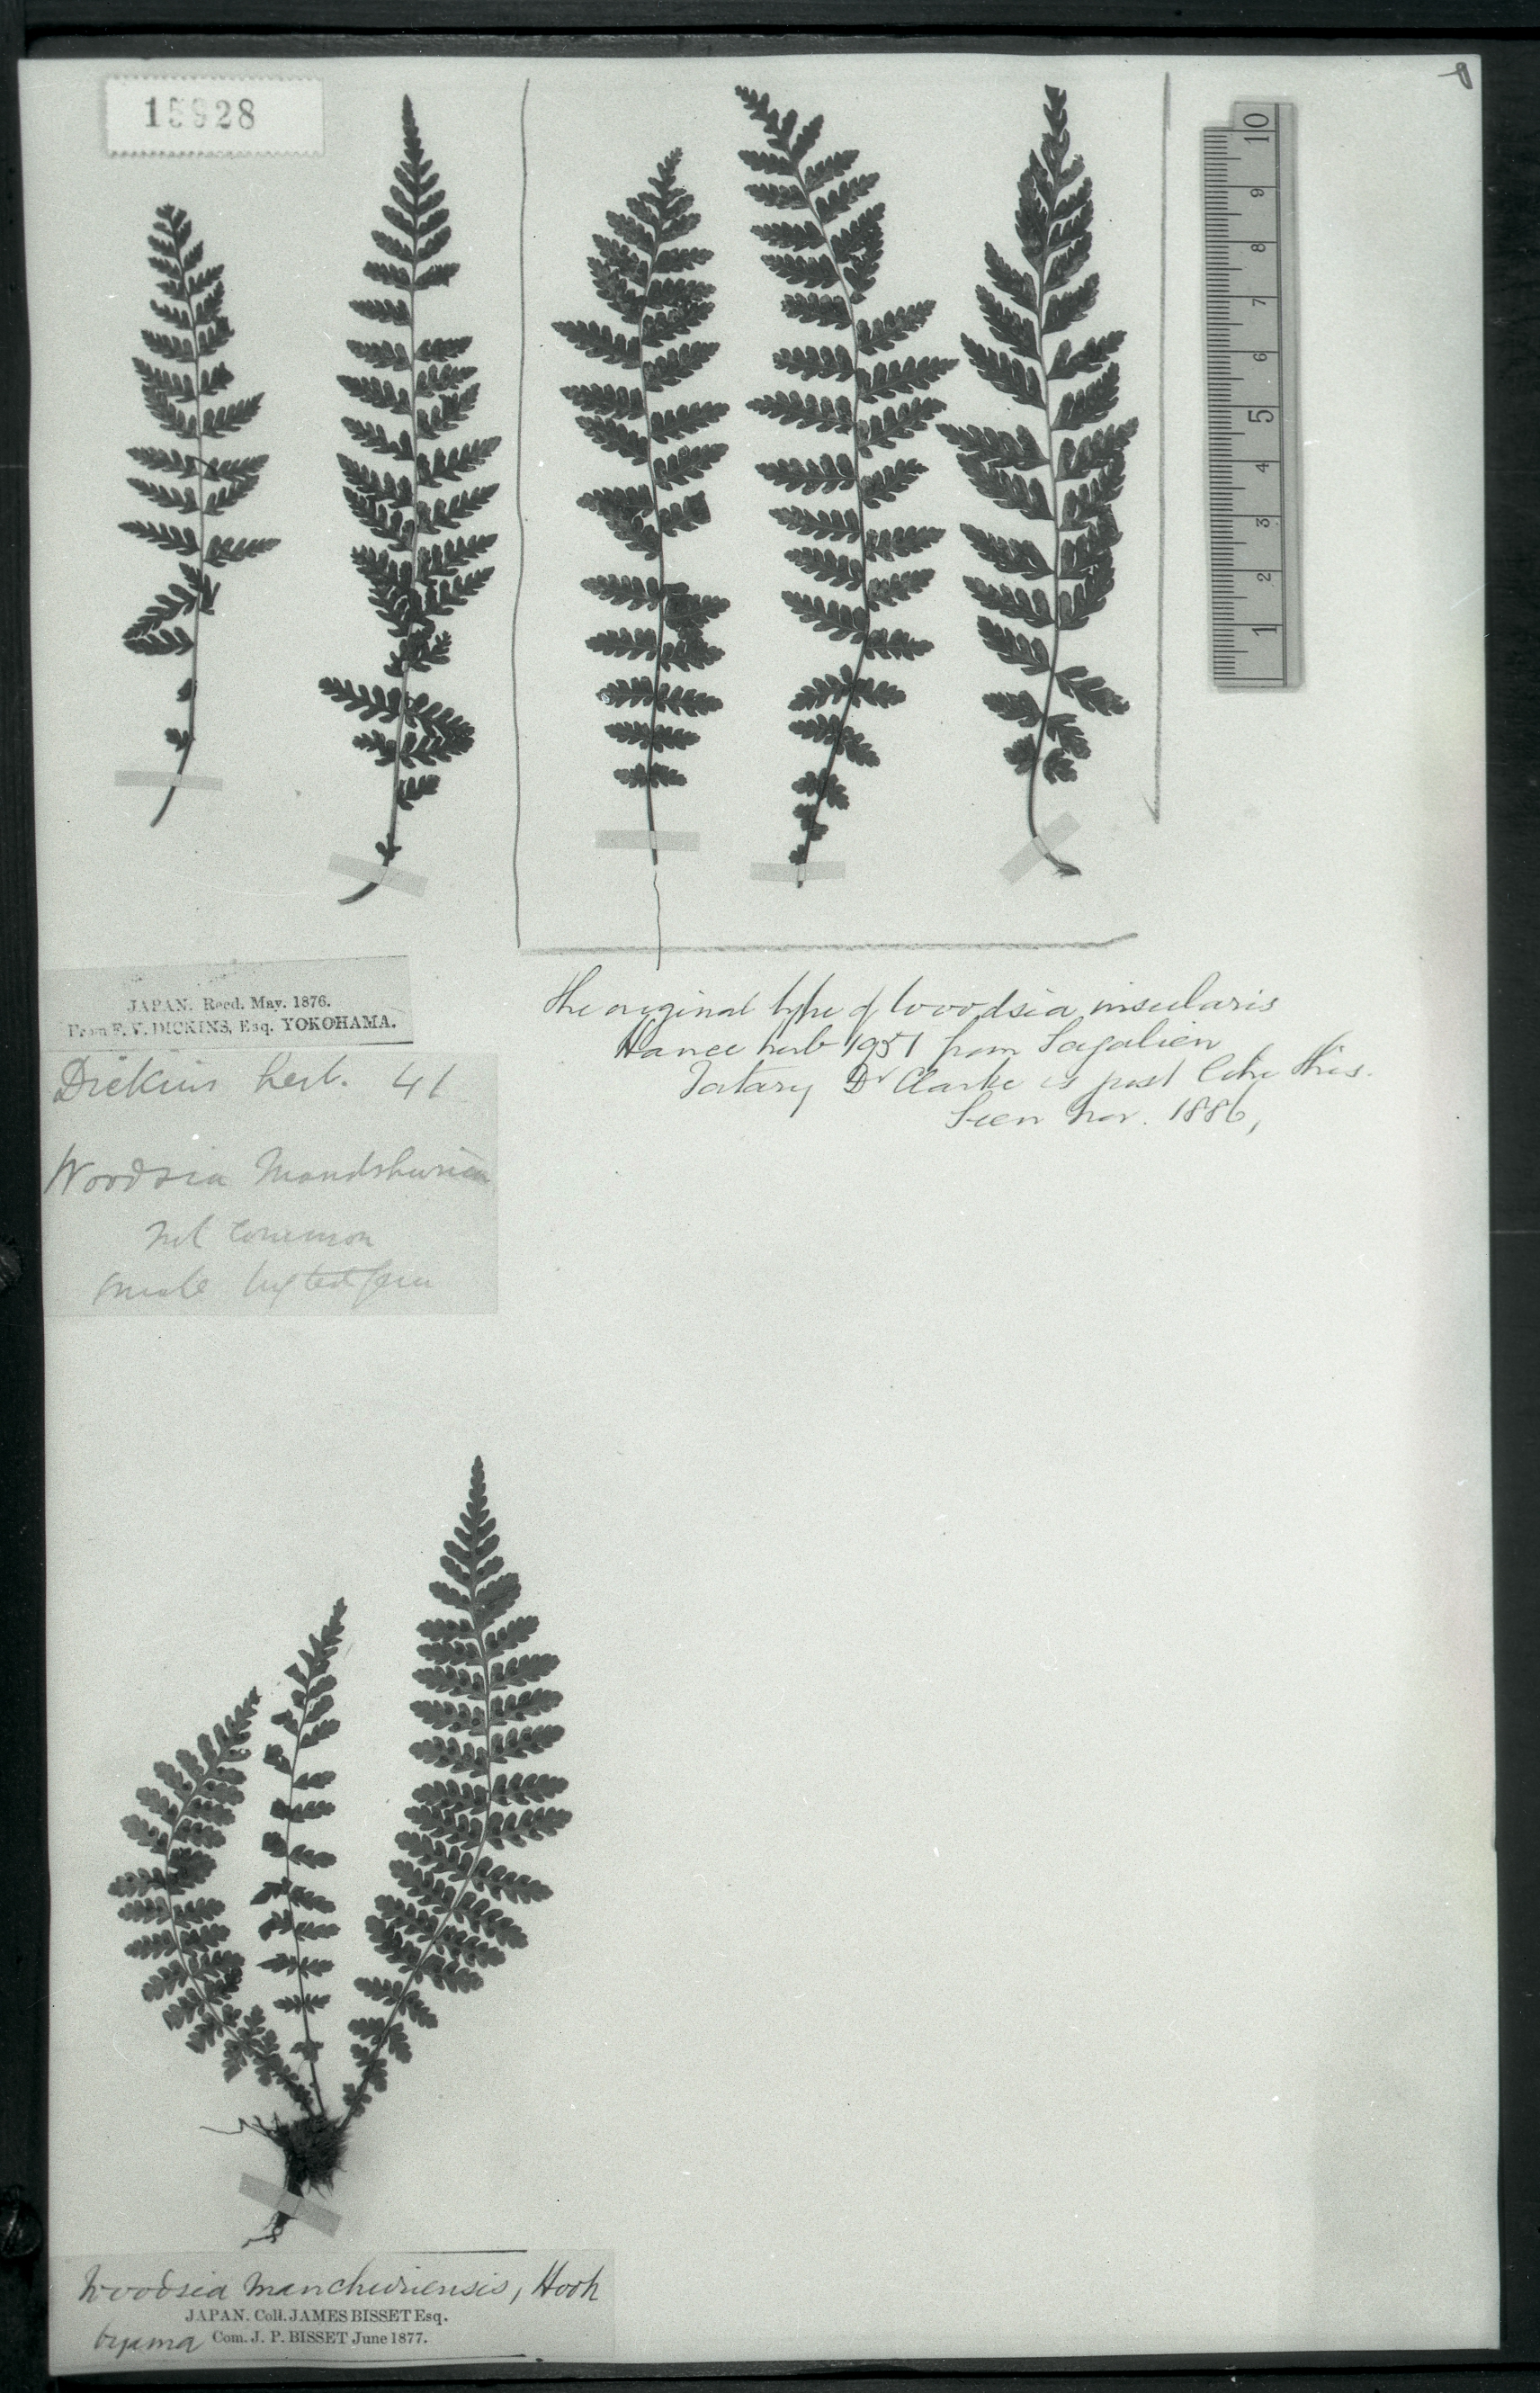 15928
10
9
8
7
6
5
4
3
2
1
JAPAN. Recd. May. 1876.
From F. V. DICKINS, Esq. YOKOHAMA.
Dickins herb. 41
Woodsia Mandshurica
not common
small tufted fern
the original type of Woodsia insularis
Hance herb 1951 from Sagalien
Tatary Dr Clarke is just like this.
Seen Nov. 1886,
Woodsia manchuriensis, Hook
JAPAN. Coll. JAMES BISSET Esq.
Oyama Com. J. P. BISSET June 1877.